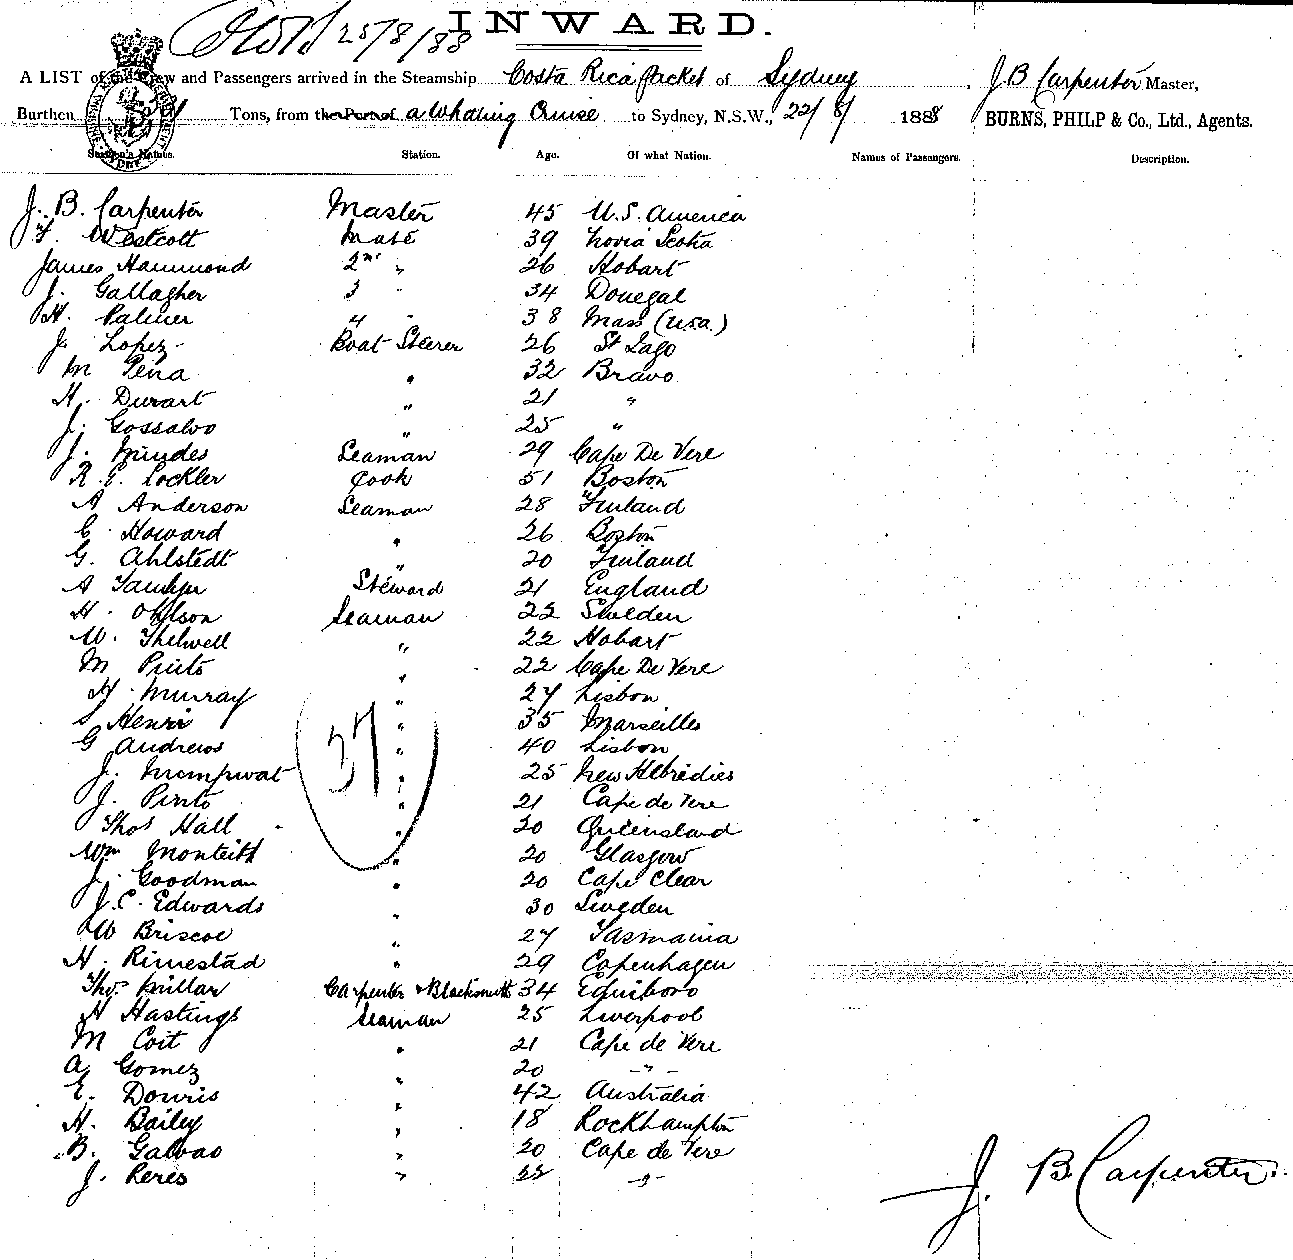 25/8/88 INWARD.
A LIST of the Crew and Passengers arrived in the Steamship Costa Rica Packet of Sydney, J B Carpenter Master,
Burthen Tons, from the Port of a Whaling Cruise to Sydney, N.S.W., 22/8/ 1888 BURNS, PHILP & Co., Ltd., Agents.
Seamen's Names. Station. Age. Of what Nation. Names of Passengers. Description.
J. B. Carpenter Master 45 U.S. America
F. Westcott Mate 39 Novia Scotia
James Hammond 2nd " 26 Hobart
J. Gallagher 3 " 34 Donegal
H. Palmer 4 " 38 Mass (U.S.A.)
J. Lopez Boat Steerer 26 St Iago
M Pena " 32 Bravo
H. Durart " 21 "
J. Gossalvo " 25 "
J. Mindes Seaman 29 Cape De Vere
R. E. Lockler Cook 51 Boston
A Anderson Seaman 28 Finland
C. Howard " 26 Boston
G. Ahlstedt " 20 Finland
A Steward 21 England
H. Ohlson Seaman 22 Sweden
W. Thelwell " 22 Hobart
M Pinto " 22 Cape De Vere
H. Murray " 27 Lisbon
S Henri " 35 Marseilles
G Andrews " 40 Lisbon
37
J. " 25 New Hebredies
J. Pinto " 21 Cape de Vere
Thos Hall " 20 Queensland
Wm Monteith " 20 Glasgow
J. Goodman " 20 Cape Clear
J.C. Edwards " 30 Sweden
W Briscoe " 27 Tasmania
H. Rimestad " 29 Copenhagen
Thos. Millar Carpenter & Blacksmith 34 Edinboro
H Hastings Seaman 25 Liverpool
M Coit " 21 Cape de Vere
A. Gomez " 20 - " -
E. Dowris " 42 Australia
H. Bailey " 18 Rockhampton
B. Galvao " 20 Cape de Vere
J. Reres " 22 - " -
J. B Carpenter